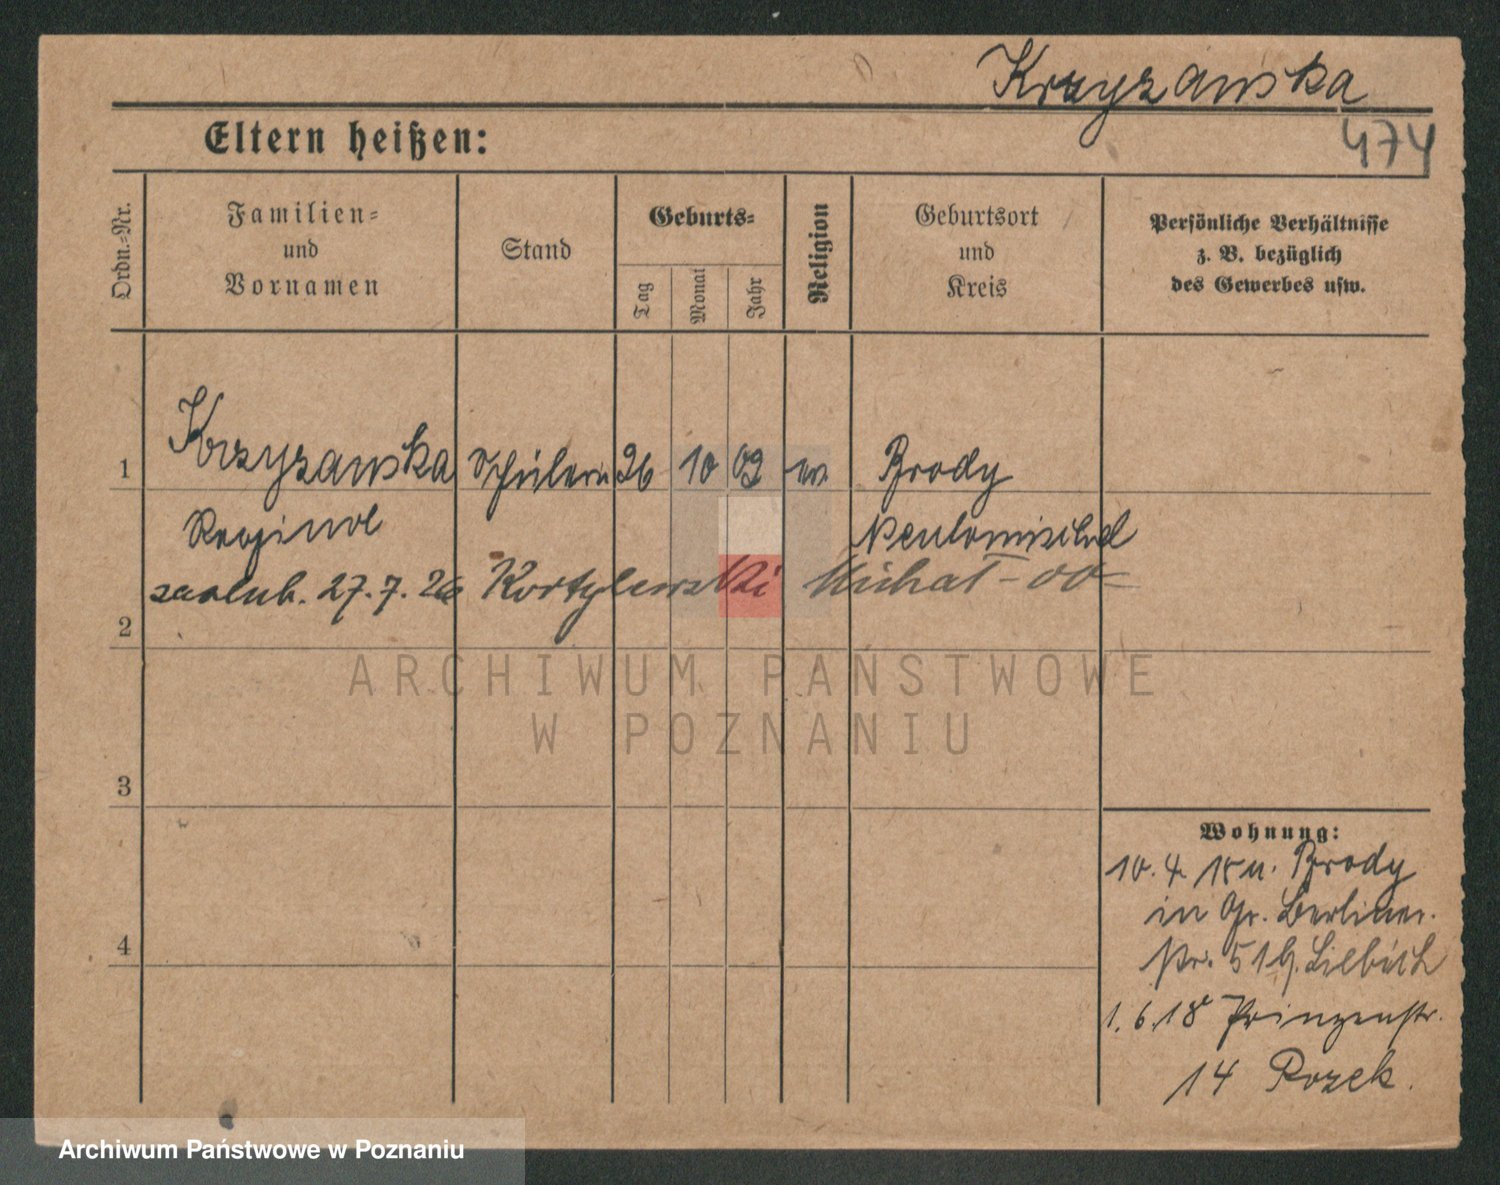 Krzyzanska
474
Eltern heißen:
Ordn.-Nr.
Familien-
und
Vornamen
Stand
Geburts-
Tag
Monat
Jahr
Religion
Geburtsort
und
Kreis
Persönliche Verhältnisse
z. B. bezüglich
des Gewerbes usw.
1 Krzyzanska Schülerin 26 10 02 ev Brody
Neutomischel
zaslub. 27.7.26 Kortylewski Michał
2
ARCHIWUM PAŃSTWOWE
W POZNANIU
3
4
Wohnung:
10. 4. 18 v. Brody
in Gr. Berliner-
str. 51 b. Liebich
1. 6. 18 Prinzenstr.
14 Rozek.
Archiwum Państwowe w Poznaniu